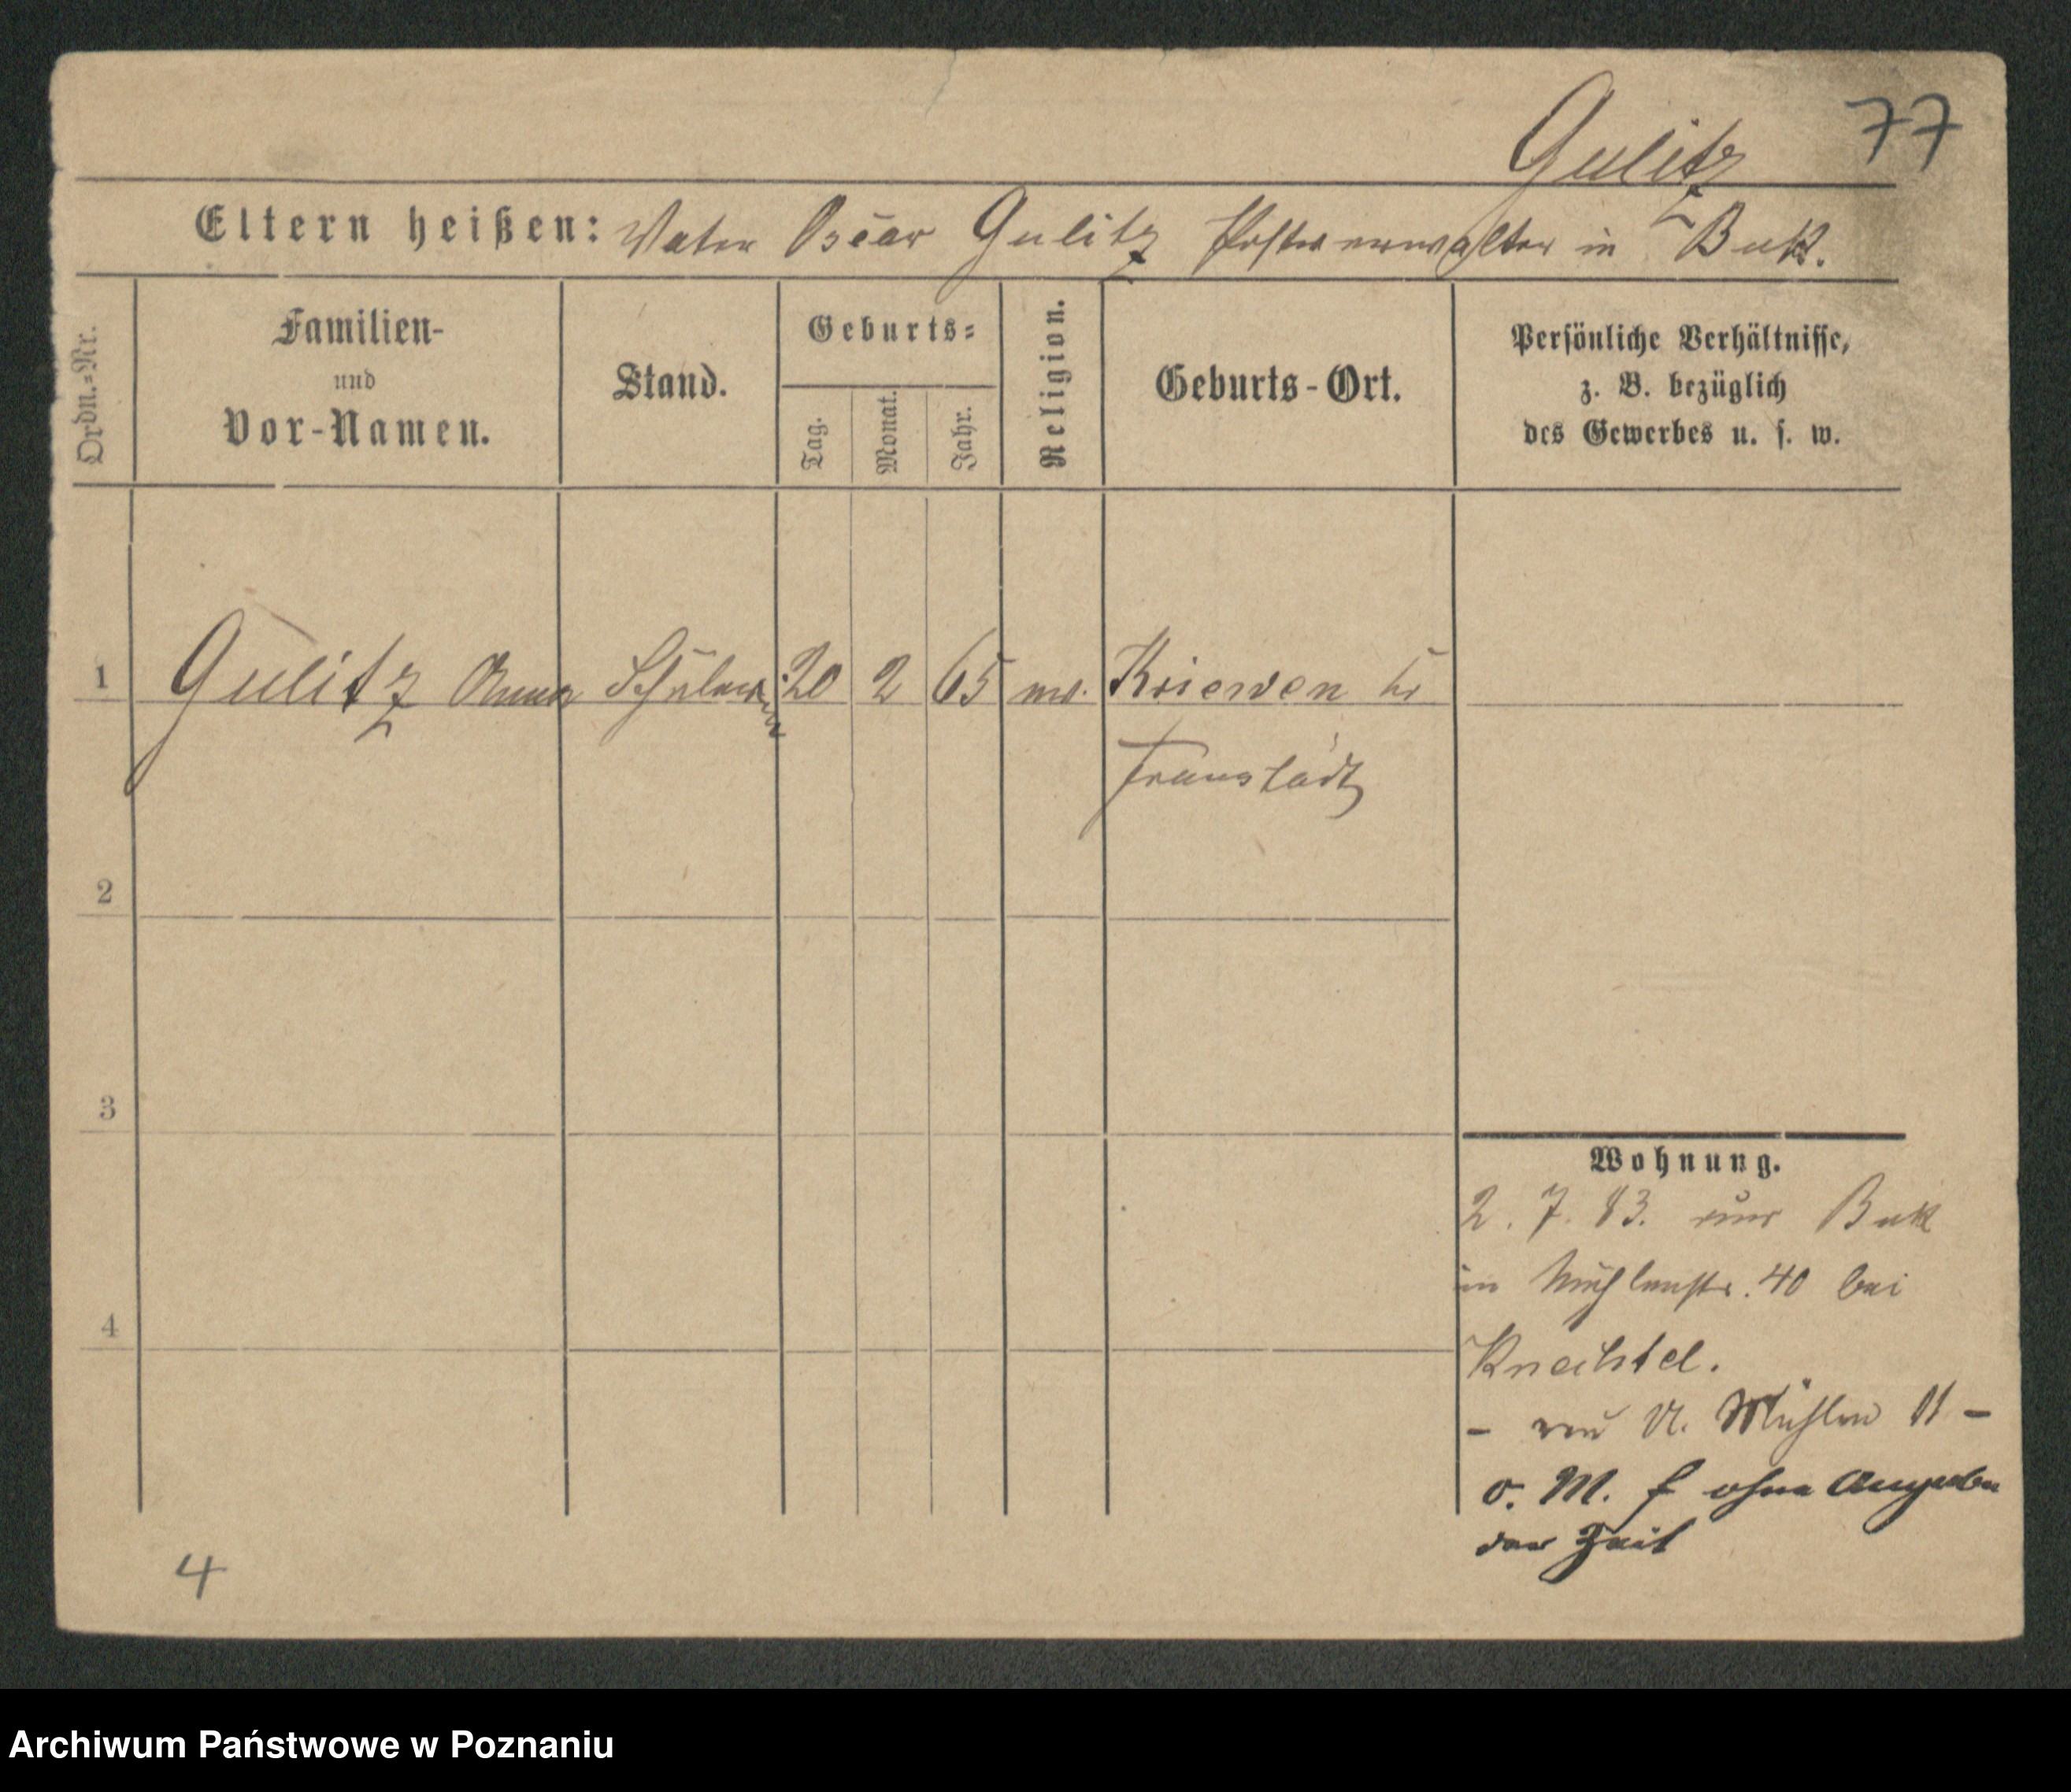 Gulitz 77
Eltern heißen: Vater Oscar Gulitz Postverwalter in Buk.
Ordn.=Nr.
Familien-
und
Vor-Namen.
Stand.
Geburts=
Tag.
Monat.
Jahr.
Religion.
Geburts-Ort.
Persönliche Verhältnisse,
z. B. bezüglich
des Gewerbes u. s. w.
1 Gulitz Anna Schülerin 20 2 65 ev. Kriewen Kr
Fraustadt
2
3
4
Wohnung.
2. 7. 83. aus Buk
in Mühlenstr. 40 bei
- Mühlen 11 -
o. M. f ohne Angaben
der Zeit
4
Archiwum Państwowe w Poznaniu